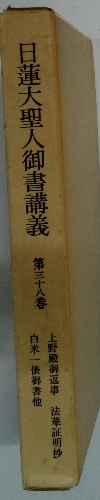 日蓮大聖人御書講義
第三十八巻
上野殿御返事 法華証明抄
白米一俵御書他